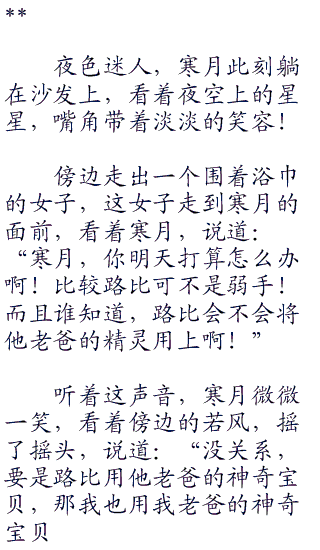 **
夜色迷人，寒月此刻躺
在沙发上，看着夜空上的星
星，嘴角带着淡淡的笑容！
傍边走出一个围着浴巾
的女子，这女子走到寒月的
面前，看着寒月，说道：
“寒月，你明天打算怎么办
啊！比较路比可不是弱手！
而且谁知道，路比会不会将
他老爸的精灵用上啊！”
听着这声音，寒月微微
一笑，看着傍边的若风，摇
了摇头，说道：“没关系，
要是路比用他老爸的神奇宝
贝，那我也用我老爸的神奇
宝贝